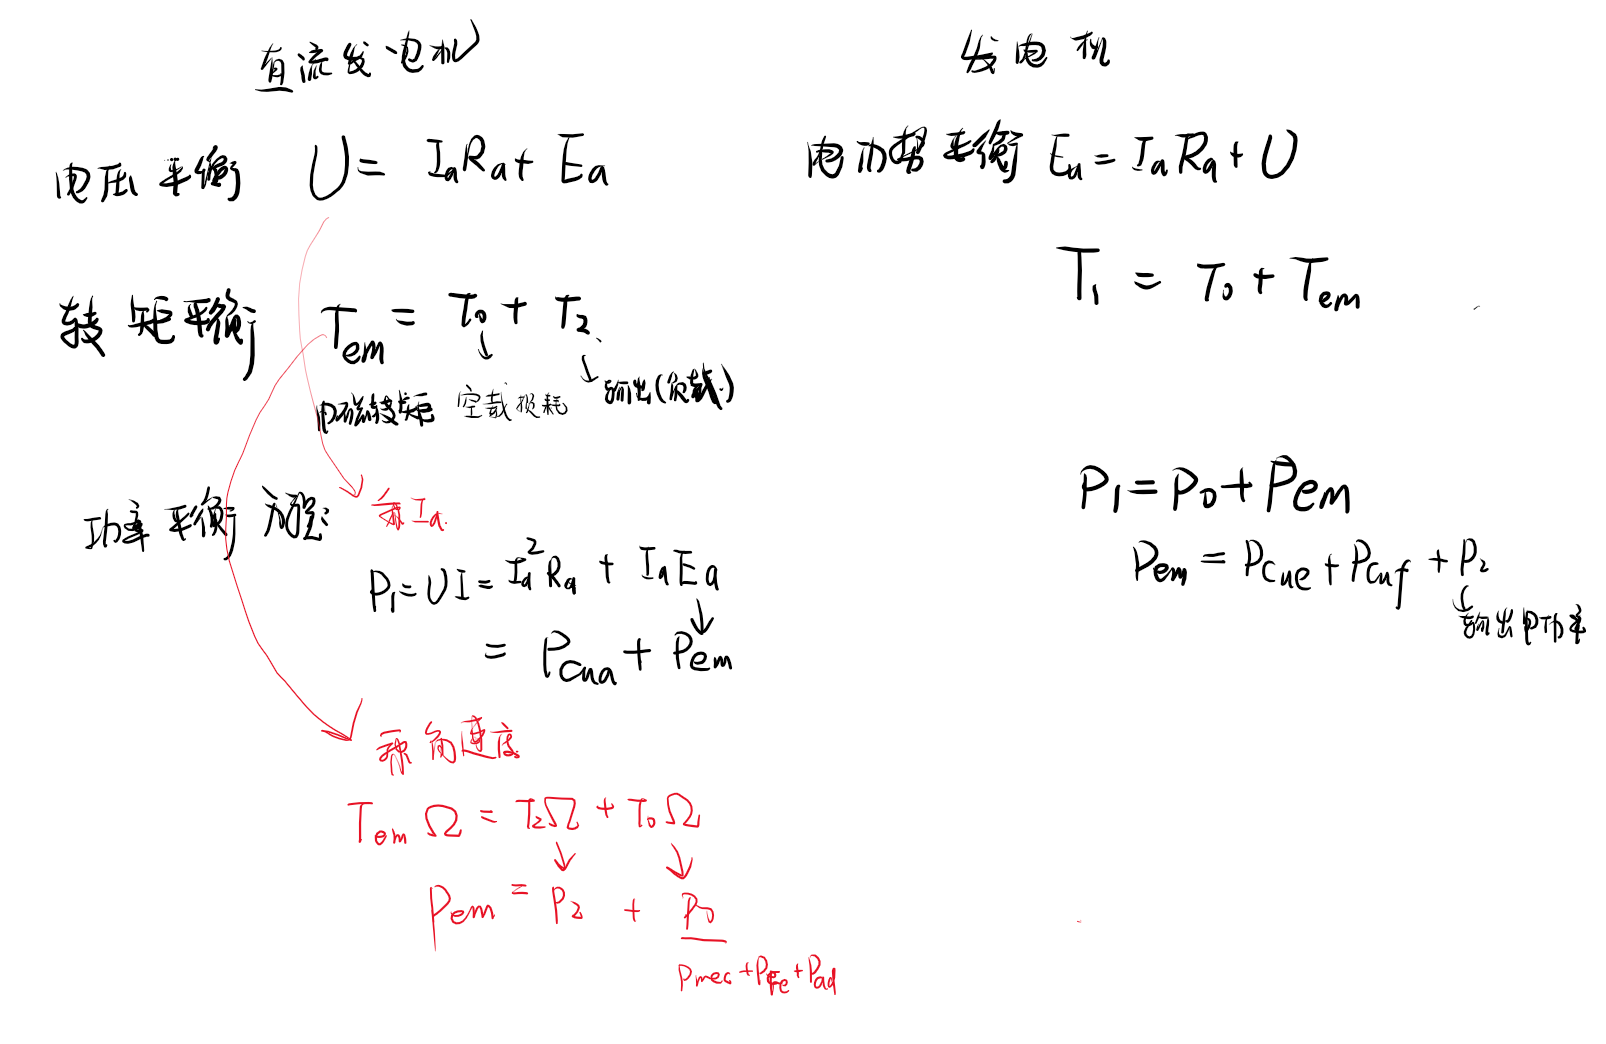 直流发电机
电压平衡 U = IaRa + Ea
转矩平衡 Tem = T0 + T2
电磁转矩 空载损耗 输出(负载)
功率平衡方程:
乘Ia.
P1 = UI = Ia²Ra + IaEa
= Pcua + Pem
乘角速度
TemΩ = T2Ω + T0Ω
Pem = P2 + P0
Pmec + PFe + Pad
发电机
电动势平衡 Ea = IaRa + U
T1 = T0 + Tem
P1 = P0 + Pem
Pem = Pcue + Pcuf + P2
输出电功率